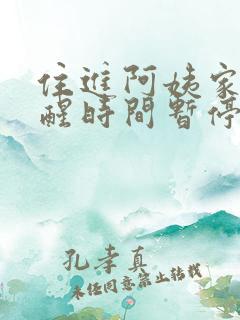 住進阿姨家
醒時間暫停
孔孝真
未经同意禁止转载